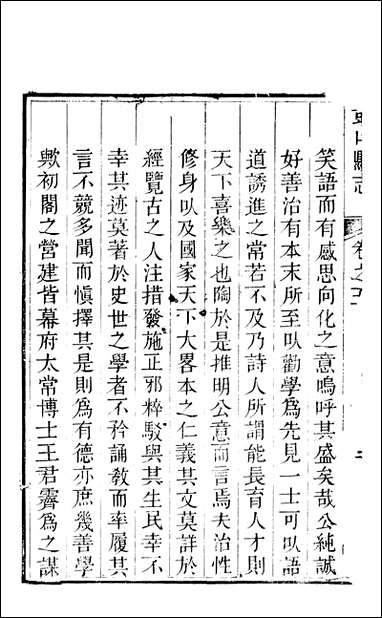 縣志
卷之
笑語而有感思向化之意嗚呼其盛矣哉公純誠
好善治有本末所至以勸學爲先見一士可以語
道誘進之常若不及乃詩人所謂能長育人才則
天下喜樂之也陶於是推明公意而言焉夫治性
修身以及國家天下大畧本之仁義其文莫詳於
經覽古之人注措發施正邪粹駁與其生民幸不
幸其迹莫著於史世之學者不矜誦敎而率履其
言不競多聞而愼擇其是則爲有德亦庶幾善學
歟初閣之營建皆幕府太常博士王君霽爲之謀